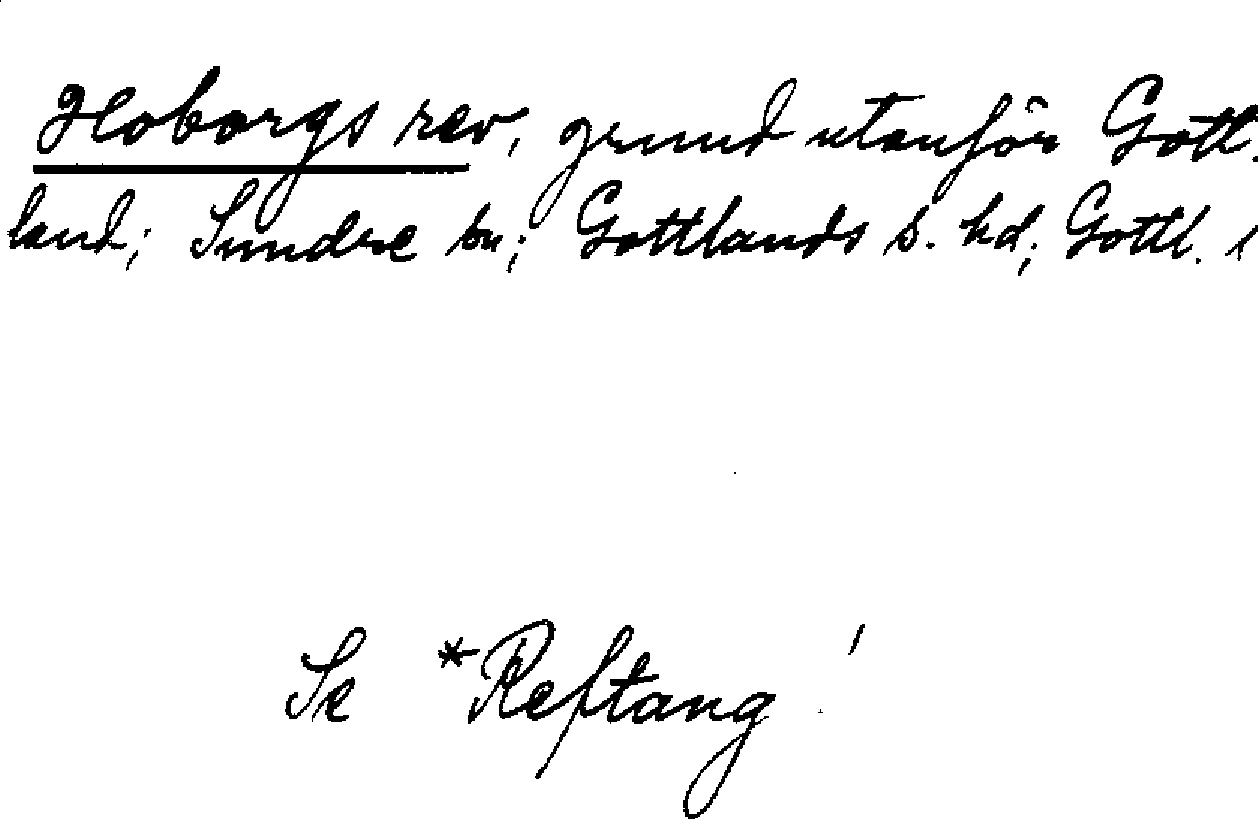 Hoborgs rev, grund utanför Gott-
land; Sundre sn; Gottlands s. hd; Gottl. l
Se *Reftang !